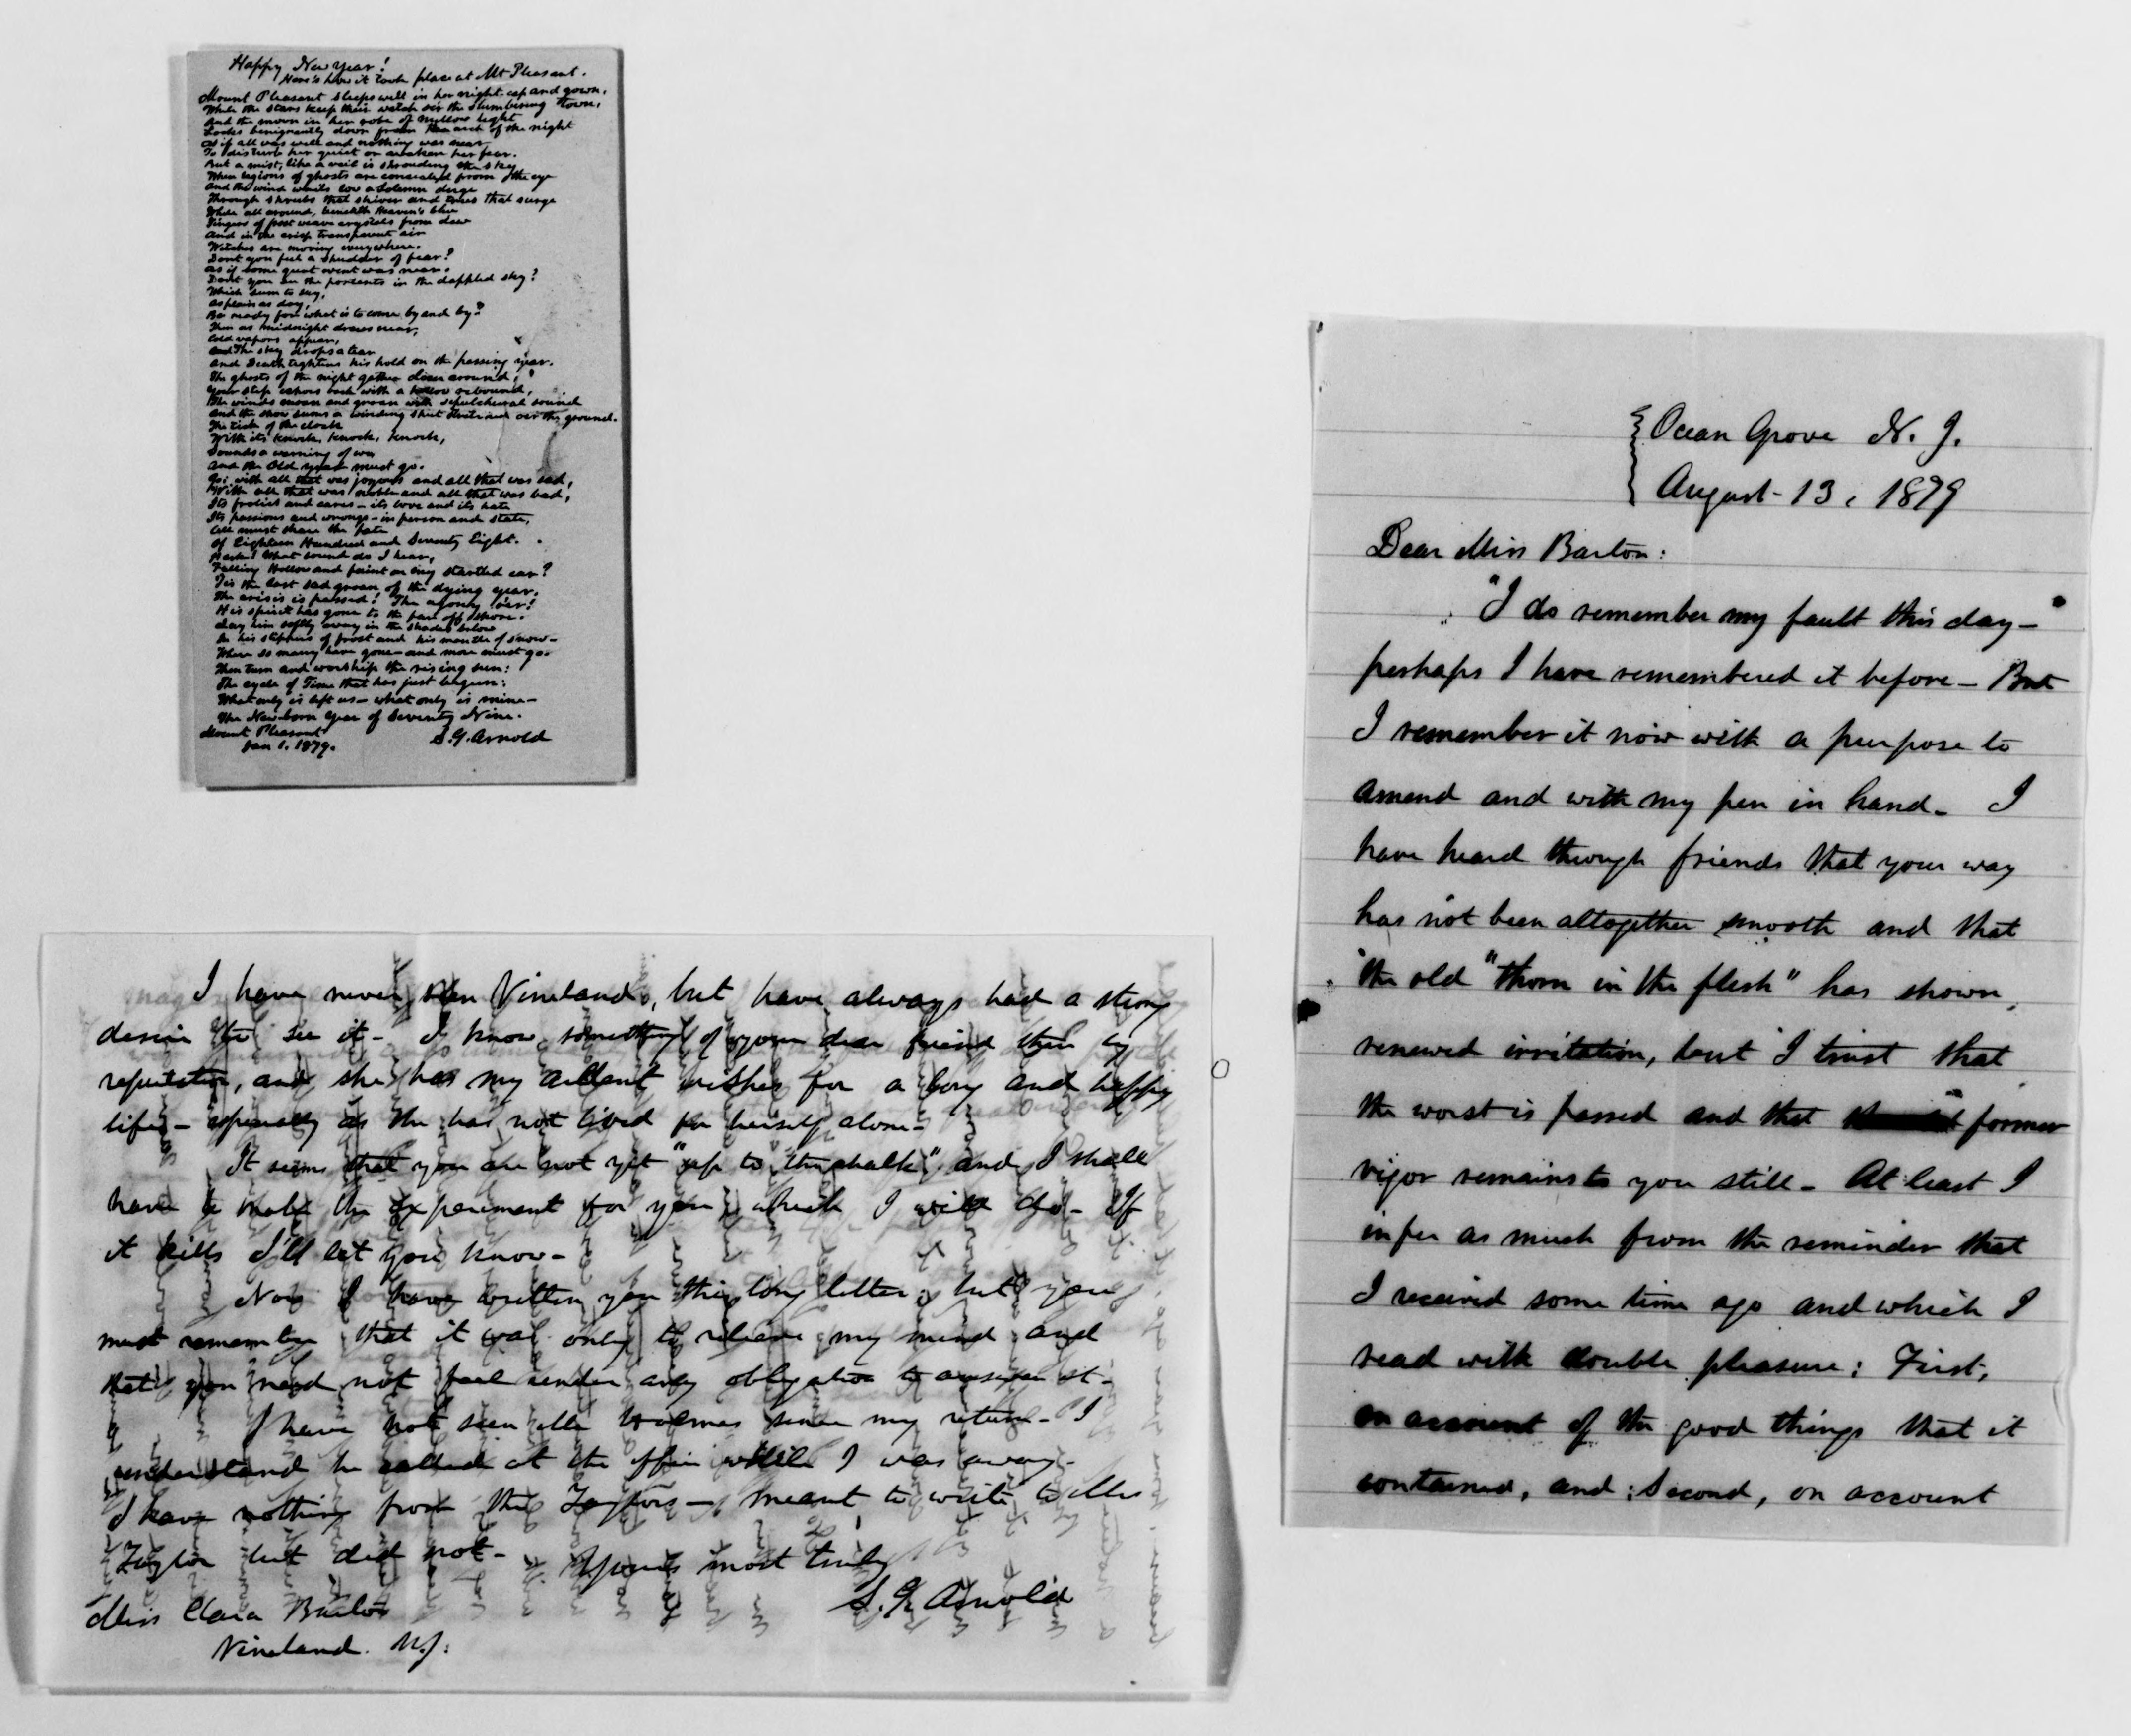 Happy New Year!
Here's how it took place at Mt Pleasant.
Mount Pleasant sleeps well in her night cap and gown,
While the stars keep their watch o'er the slumbering town,
And the moon in her robe of mellow light
Looks benignantly down from the arch of the night
As if all was well and nothing was near
To disturb her quiet or awaken her fear.
But a mist, like a veil is shrouding the sky
When legions of ghosts are concealed from the eye
And the wind wails low a solemn dirge
Through shrubs that shiver and trees that surge
While all around, beneath Heaven's blue
Fingers of frost weave crystals from dew
And in the crisp transparent air
Witches are moving everywhere.
Dont you feel a shudder of fear?
As if some great event was near.
Dont you see the portents in the dappled sky?
Which seem to say,
As plain as day,
Be ready for what is to come by and by?
Then as midnight draws near,
Cold vapors appear,
And the sky drops a tear
And Death tightens his hold on the passing year.
The ghosts of the night gather closer around,
Your step echoes back with a hollow rebound,
The winds moan and groan with sepulchral sound
And the snow seems a winding sheet o'er the ground.
The tick of the clock
With its knock, knock, knock,
Sounds a warning of woe
And the Old year must go.
Go: with all that was joyous and all that was sad,
With all that was noble and all that was bad,
Its frolics and cares - its love and its hate
Its passions and wrongs - in person and state,
All must share the fate
Of Eighteen Hundred and Seventy Eight.
Hark! What sound do I hear,
Falling Hollow and faint on my startled ear?
Tis the last sad groan of the dying year.
The crisis is passed! The agony o'er!
His spirit has gone to the far off shore.
Lay him softly away in the shades below
In his slippers of frost and his mantle of snow-
Where so many have gone - and more must go.
Then turn and worship the rising sun:
The cycle of Time that has just begun:
What only is left us - what only is mine-
The New-born Year of Seventy Nine.
Mount Pleasant S. G. Arnold
Jan 1. 1879.
I have never seen Vineland, but have always had a strong
desire to see it - I know something of your dear friend there by
reputation, and she has my ardent wishes for a long and happy
life - especially as she has not lived for herself alone-
It seems that you are not yet "up to the chalk" and I shall
have to make the experiment for you which I will do - If
it kills I'll let you know-
Now I have written you this long letter, but you
must remember that it was only to relieve my mind and
that you need not feel under any obligation to answer it-
I have not seen Mr since my return - I
understand he called at the office while I was away-
I have nothing from the Taylors - I meant to write to Mrs
Taylor but did not- Yours most truly
S. G. Arnold
Miss Clara Barton
Vineland. N.J.
Ocean Grove N. J.
August 13, 1879
Dear Miss Barton:
"I do remember my fault this day-"
perhaps I have remembered it before - But
I remember it now with a purpose to
amend and with my pen in hand - I
have heard through friends that your way
has not been altogether smooth and that
the old "thorn in the flesh" has shown
renewed irritation, but I trust that
the worst is passed and that former
vigor remains to you still - At least I
infer as much from the reminder that
I received some time ago and which I
read with double pleasure: First,
on account of the good things that it
contained, and: Second, on account